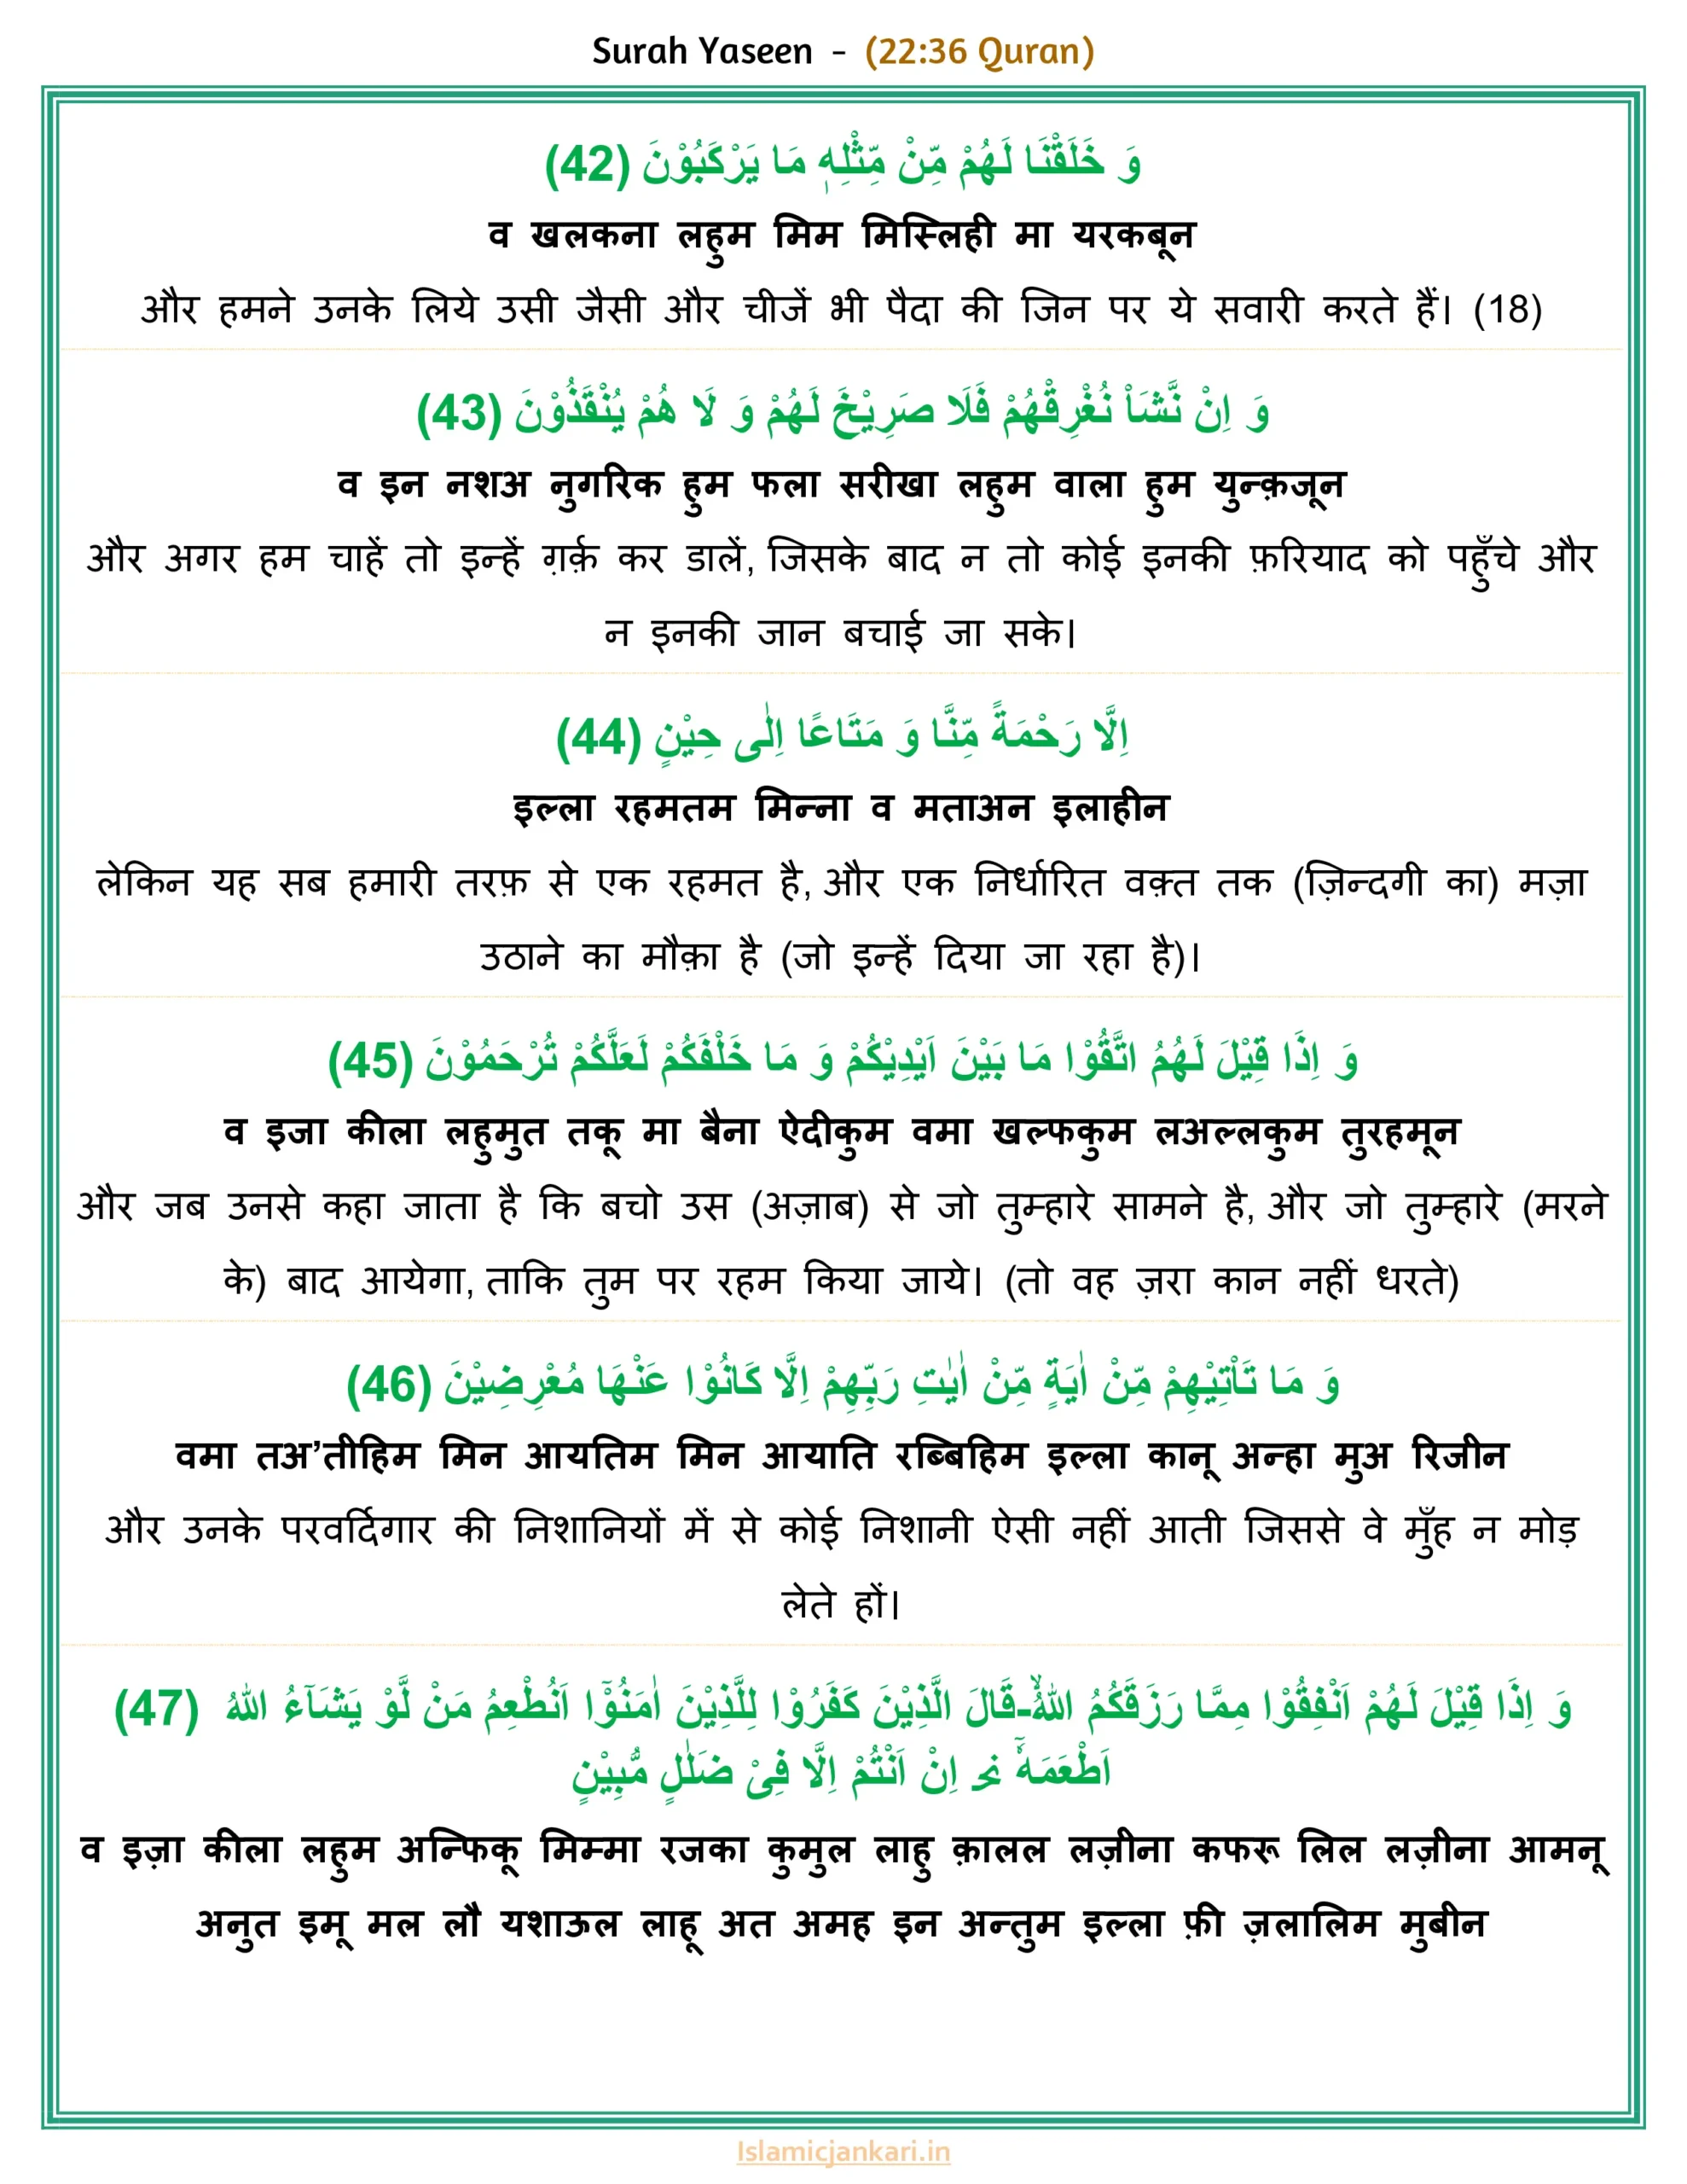 Surah Yaseen - (22:36 Quran)
وَ خَلَقْنَا لَهُمْ مِّنْ مِّثْلِهٖ مَا یَرْكَبُوْنَ (42)
व खलकना लहुम मिम मिस्लिही मा यरकबून
और हमने उनके लिये उसी जैसी और चीजें भी पैदा की जिन पर ये सवारी करते हैं। (18)
وَ اِنْ نَّشَاْ نُغْرِقْهُمْ فَلَا صَرِیْخَ لَهُمْ وَ لَا هُمْ یُنْقَذُوْنَ (43)
व इन नशअ नुगरिक हुम फला सरीखा लहुम वाला हुम युन्क़जून
और अगर हम चाहें तो इन्हें ग़र्क़ कर डालें, जिसके बाद न तो कोई इनकी फ़रियाद को पहुँचे और
न इनकी जान बचाई जा सके।
اِلَّا رَحْمَةً مِّنَّا وَ مَتَاعًا اِلٰى حِیْنٍ (44)
इल्ला रहमतम मिन्ना व मताअन इलाहीन
लेकिन यह सब हमारी तरफ़ से एक रहमत है, और एक निर्धारित वक़्त तक (ज़िन्दगी का) मज़ा
उठाने का मौक़ा है (जो इन्हें दिया जा रहा है)।
وَ اِذَا قِیْلَ لَهُمُ اتَّقُوْا مَا بَیْنَ اَیْدِیْكُمْ وَ مَا خَلْفَكُمْ لَعَلَّكُمْ تُرْحَمُوْنَ (45)
व इजा कीला लहुमुत तकू मा बैना ऐदीकुम वमा खल्फकुम लअल्लकुम तुरहमून
और जब उनसे कहा जाता है कि बचो उस (अज़ाब) से जो तुम्हारे सामने है, और जो तुम्हारे (मरने
के) बाद आयेगा, ताकि तुम पर रहम किया जाये। (तो वह ज़रा कान नहीं धरते)
وَ مَا تَاْتِیْهِمْ مِّنْ اٰیَةٍ مِّنْ اٰیٰتِ رَبِّهِمْ اِلَّا كَانُوْا عَنْهَا مُعْرِضِیْنَ (46)
वमा तअ’तीहिम मिन आयतिम मिन आयाति रब्बिहिम इल्ला कानू अन्हा मुअ रिजीन
और उनके परवर्दिगार की निशानियों में से कोई निशानी ऐसी नहीं आती जिससे वे मुँह न मोड़
लेते हों।
وَ اِذَا قِیْلَ لَهُمْ اَنْفِقُوْا مِمَّا رَزَقَكُمُ اللّٰهُۙ-قَالَ الَّذِیْنَ كَفَرُوْا لِلَّذِیْنَ اٰمَنُوْۤا اَنُطْعِمُ مَنْ لَّوْ یَشَآءُ اللّٰهُ (47)
اَطْعَمَهٗۤ ﳓ اِنْ اَنْتُمْ اِلَّا فِیْ ضَلٰلٍ مُّبِیْنٍ
व इज़ा कीला लहुम अन्फिकू मिम्मा रजका कुमुल लाहु क़ालल लज़ीना कफरू लिल लज़ीना आमनू
अनुत इमू मल लौ यशाऊल लाहू अत अमह इन अन्तुम इल्ला फ़ी ज़लालिम मुबीन
Islamicjankari.in